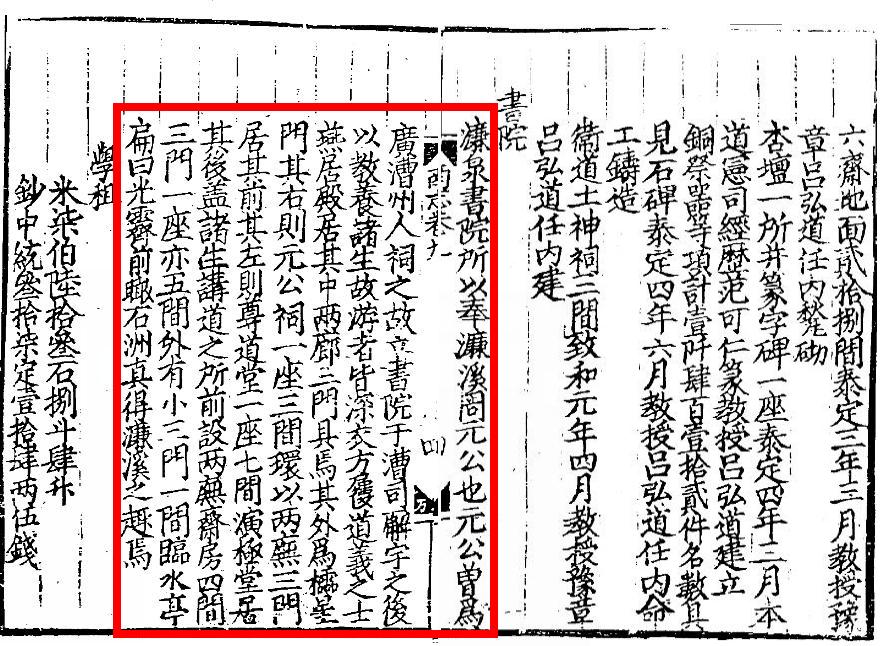 六齋地面貳拾捌間泰定三年三月教授豫
章呂弘道任內甃砌
杏壇一所并篆字碑一座泰定四年三月本
道憲司經歷范可仁篆教授呂弘道建立
銅祭器等項計壹阡肆百壹拾貳件名數具
見石碑泰定四年六月教授呂弘道任內命
工鑄造
衛道土神祠三間致和元年四月教授豫章
呂弘道任內建
書院
濂泉書院所以奉濂溪周元公也元公曾為
志卷九
四
廣漕州人祠之故立書院于漕司廨宇之後
以教養諸生故游者皆深衣方履道義之士
燕居殿居其中兩廊三門具焉其外為櫺星
門其右則元公祠一座三間環以兩廡三門
居其前其左則尊道堂一座七間演極堂居
其後盖諸生講道之所前設兩廡齋房四間
三門一座亦五間外有小三門一間臨水亭
扁曰光霽前瞰石洲真得濂溪之趣焉
學租
米柒伯陸拾叄石捌斗肆升
鈔中統叄拾柒定壹拾肆兩伍錢